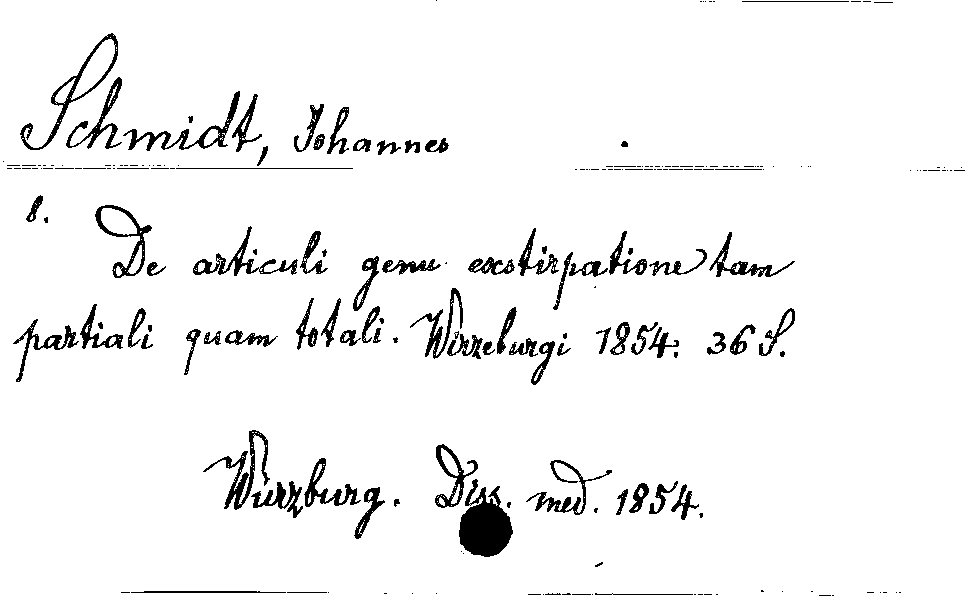 Schmidt, Johannes
8.
De articuli genu exstirpatione tam
partiali quam totali. Wirzeburgi 1854. 36 S.
Würzburg. Diss. med. 1854.